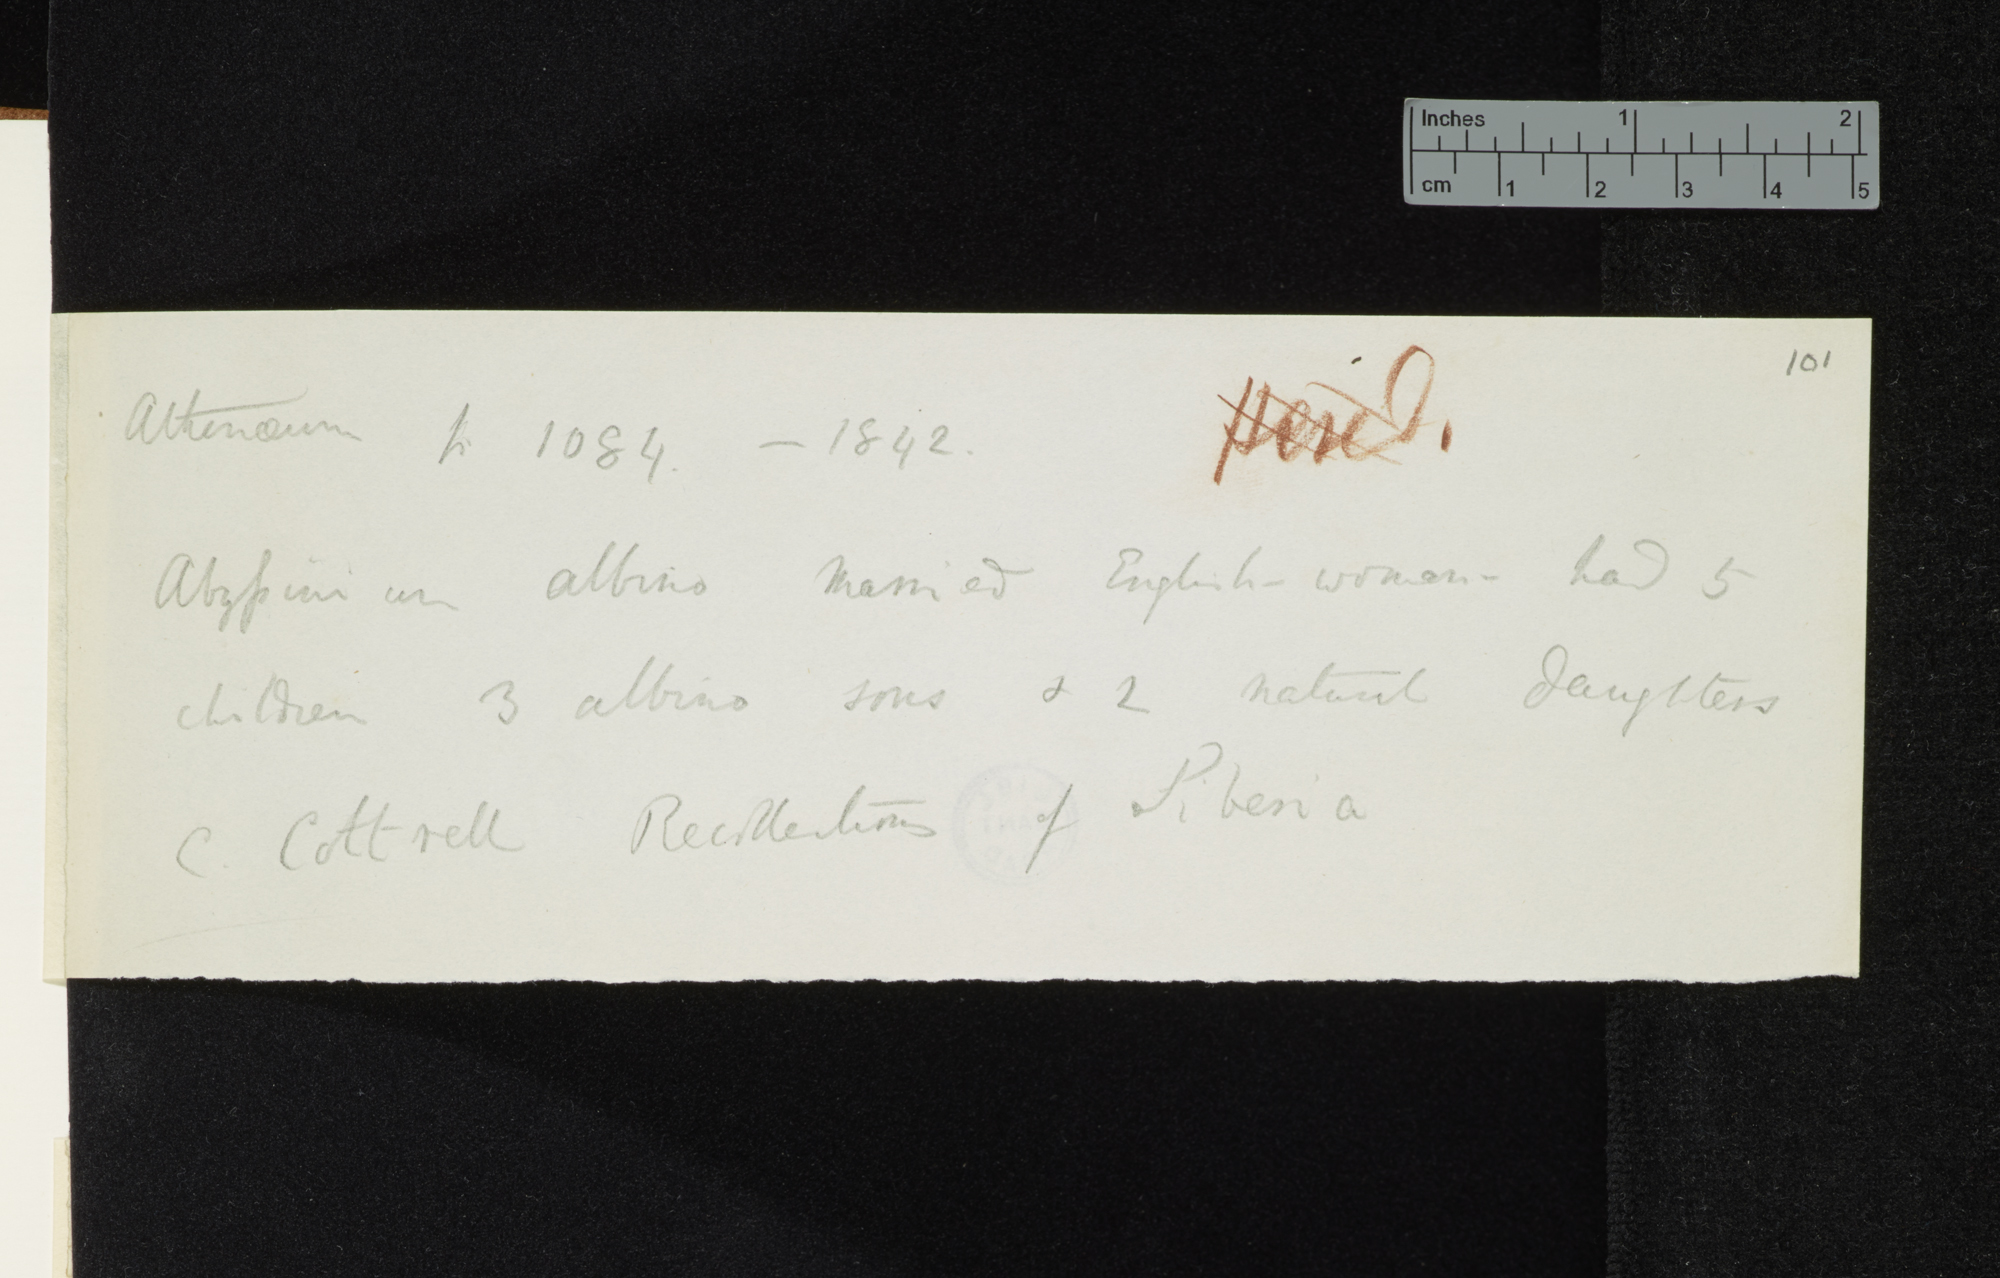 Inches 1 2
cm 1 2 3 4 5
101
Athenæum p 1084. – 1842.
Abyssinian albino married English-woman- had 5
children 3 albino sons & 2 natural daughters
C. Cottrell Recollections of Siberia